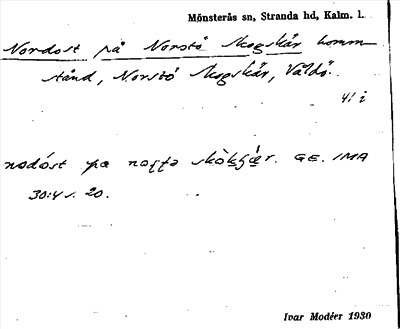 Mönsterås sn, Stranda hd, Kalm. l.
Nordost på Norstö Skogskär komm
stånd, Norstö Skogskär, Våldö.
41 i
nodóst pa skòkʂǽr. GE. IMA
30:4 s. 20.
Ivar Modéer 1930